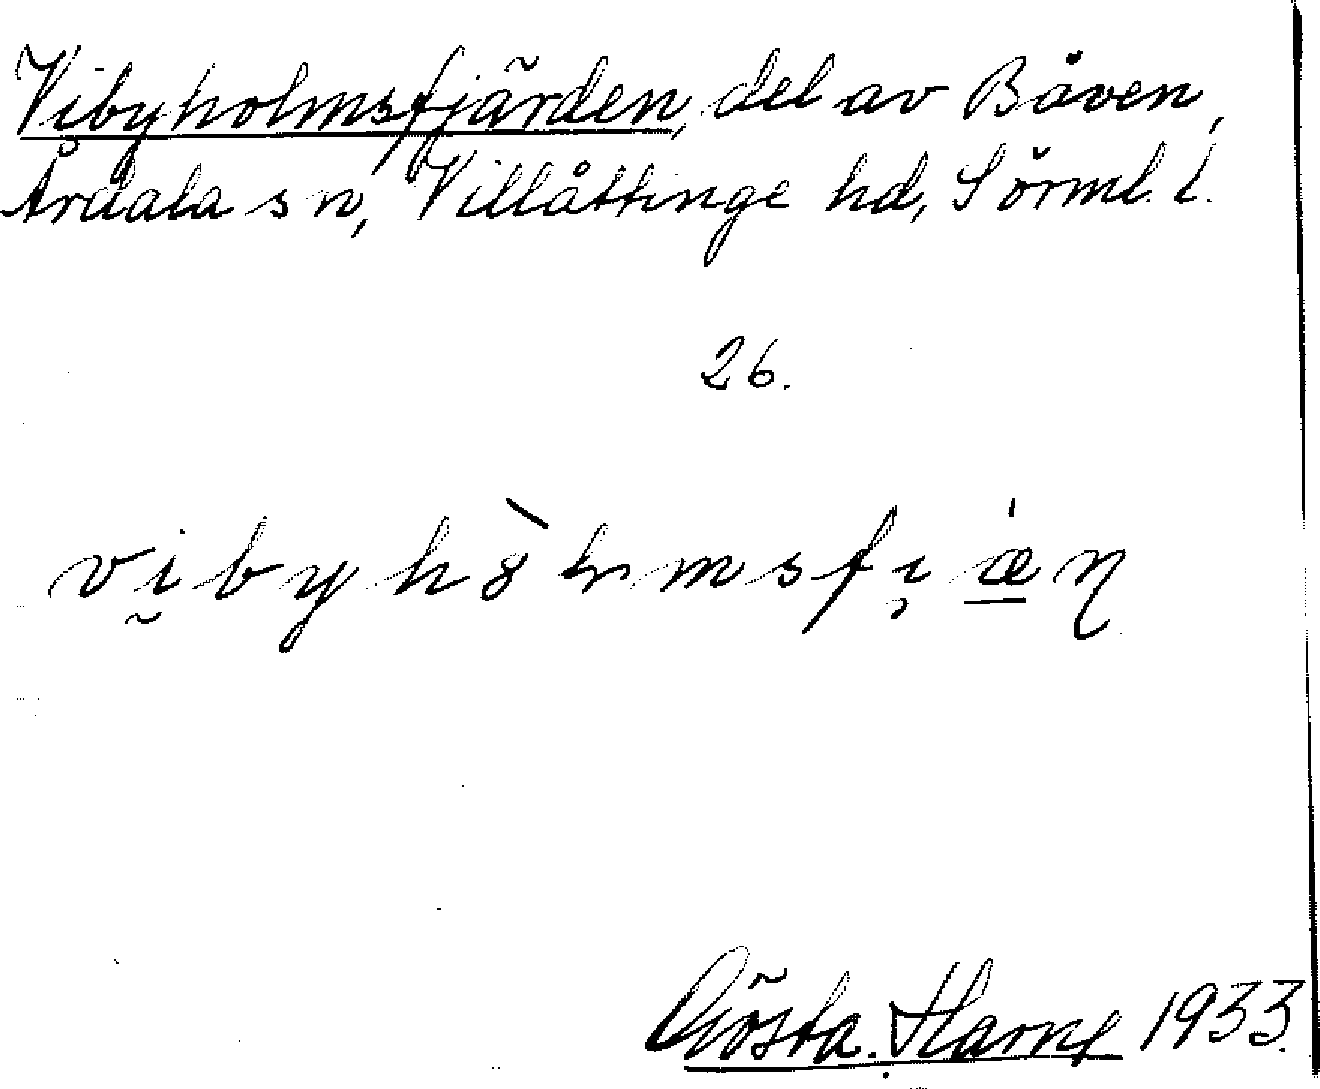 Vibyholmsfjärden, del av Båven,
Årdala sn, Villåttinge hd, Sörml. l.
26.
Gösta Harne 1933.